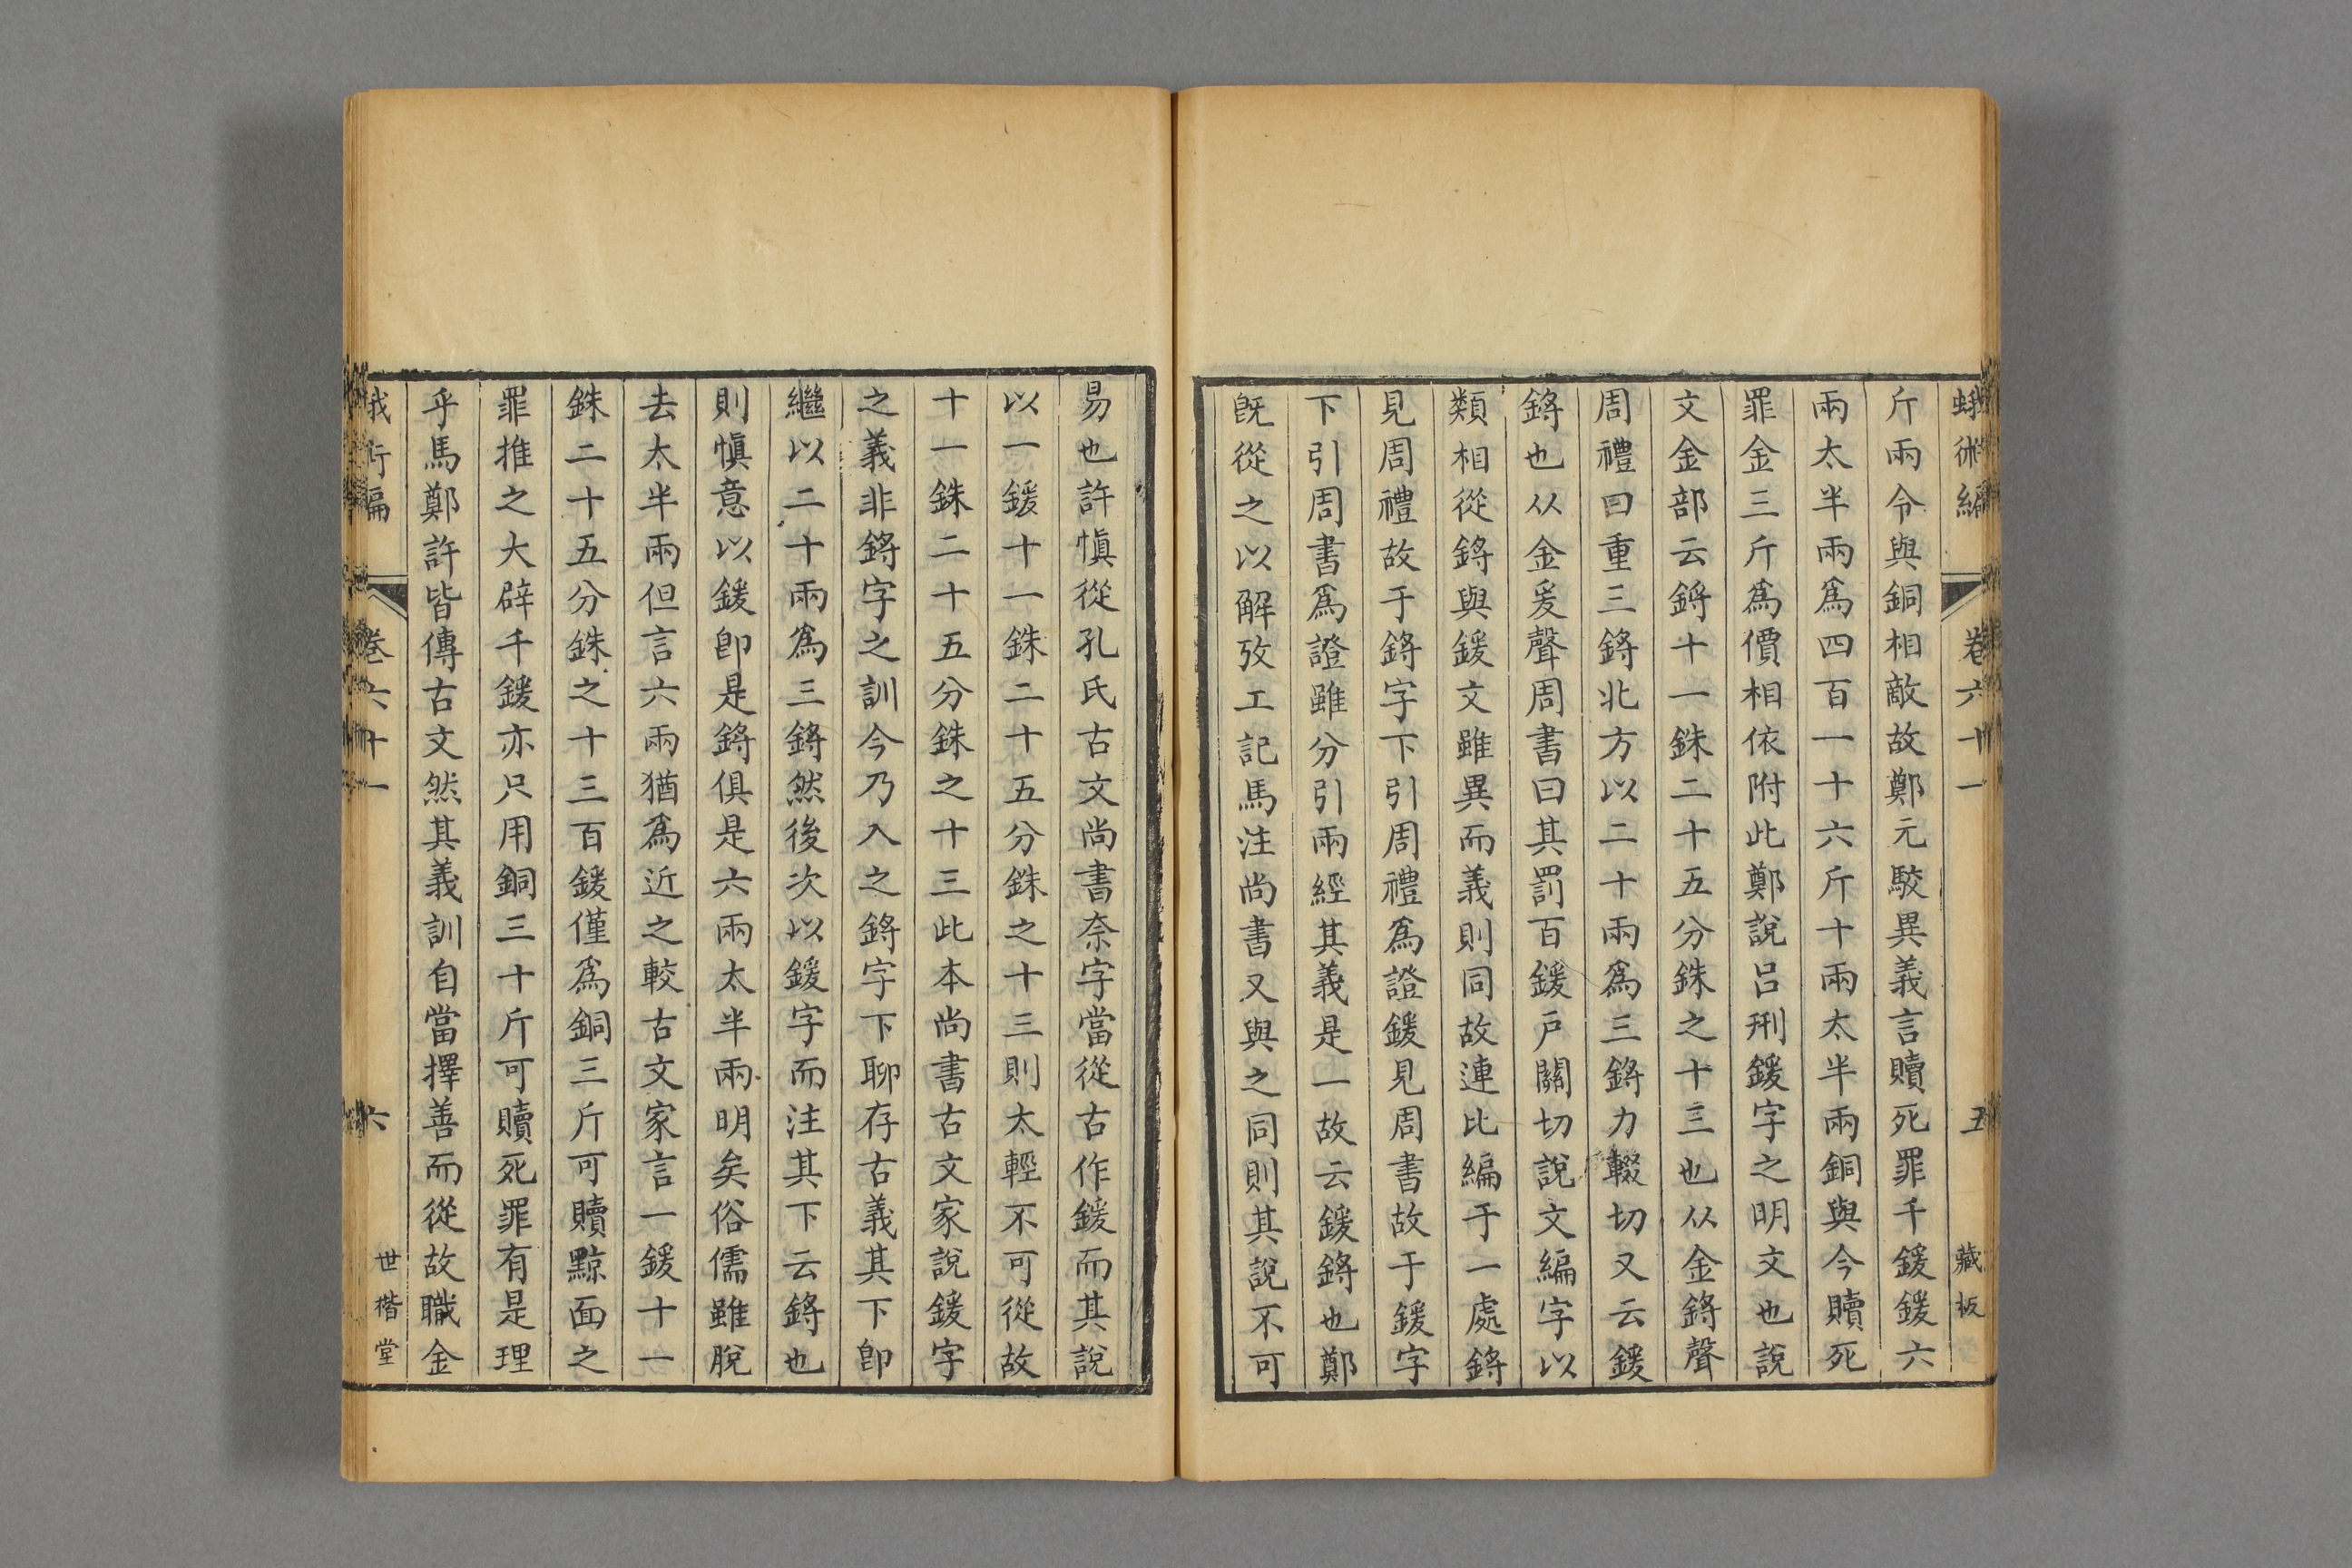 蛾術編 卷六十一 五 藏板
斤兩令與銅相敵故鄭元駁異義言贖死罪千鍰鍰六
兩太半兩爲四百一十六斤十兩太半兩銅與今贖死
罪金三斤爲價相依附此鄭說呂刑鍰字之明文也說
文金部云鋝十一銖二十五分銖之十三也从金鋝聲
周禮曰重三鋝北方以二十兩爲三鋝力輟切又云鍰
鋝也从金爰聲周書曰其罰百鍰戶關切說文編字以
類相從鋝與鍰文雖異而義則同故連比編于一處鋝
見周禮故于鋝字下引周禮爲證鍰見周書故于鍰字
下引周書爲證雖分引兩經其義是一故云鍰鋝也鄭
旣從之以解攷工記馬注尚書又與之同則其說不可
易也許愼從孔氏古文尚書奈字當從古作鍰而其說
以一鍰十一銖二十五分銖之十三則太輕不可從故
十一銖二十五分銖之十三此本尚書古文家說鍰字
之義非鋝字之訓今乃入之鋝字下聊存古義其下卽
繼以二十兩爲三鋝然後次以鍰字而注其下云鋝也
則愼意以鍰卽是鋝俱是六兩太半兩明矣俗儒雖脫
去太半兩但言六兩猶爲近之較古文家言一鍰十一
銖二十五分銖之十三百鍰僅爲銅三斤可贖黥面之
罪推之大辟千鍰亦只用銅三十斤可贖死罪有是理
乎馬鄭許皆傳古文然其義訓自當擇善而從故職金
蛾術編 卷六十一 六 世楷堂